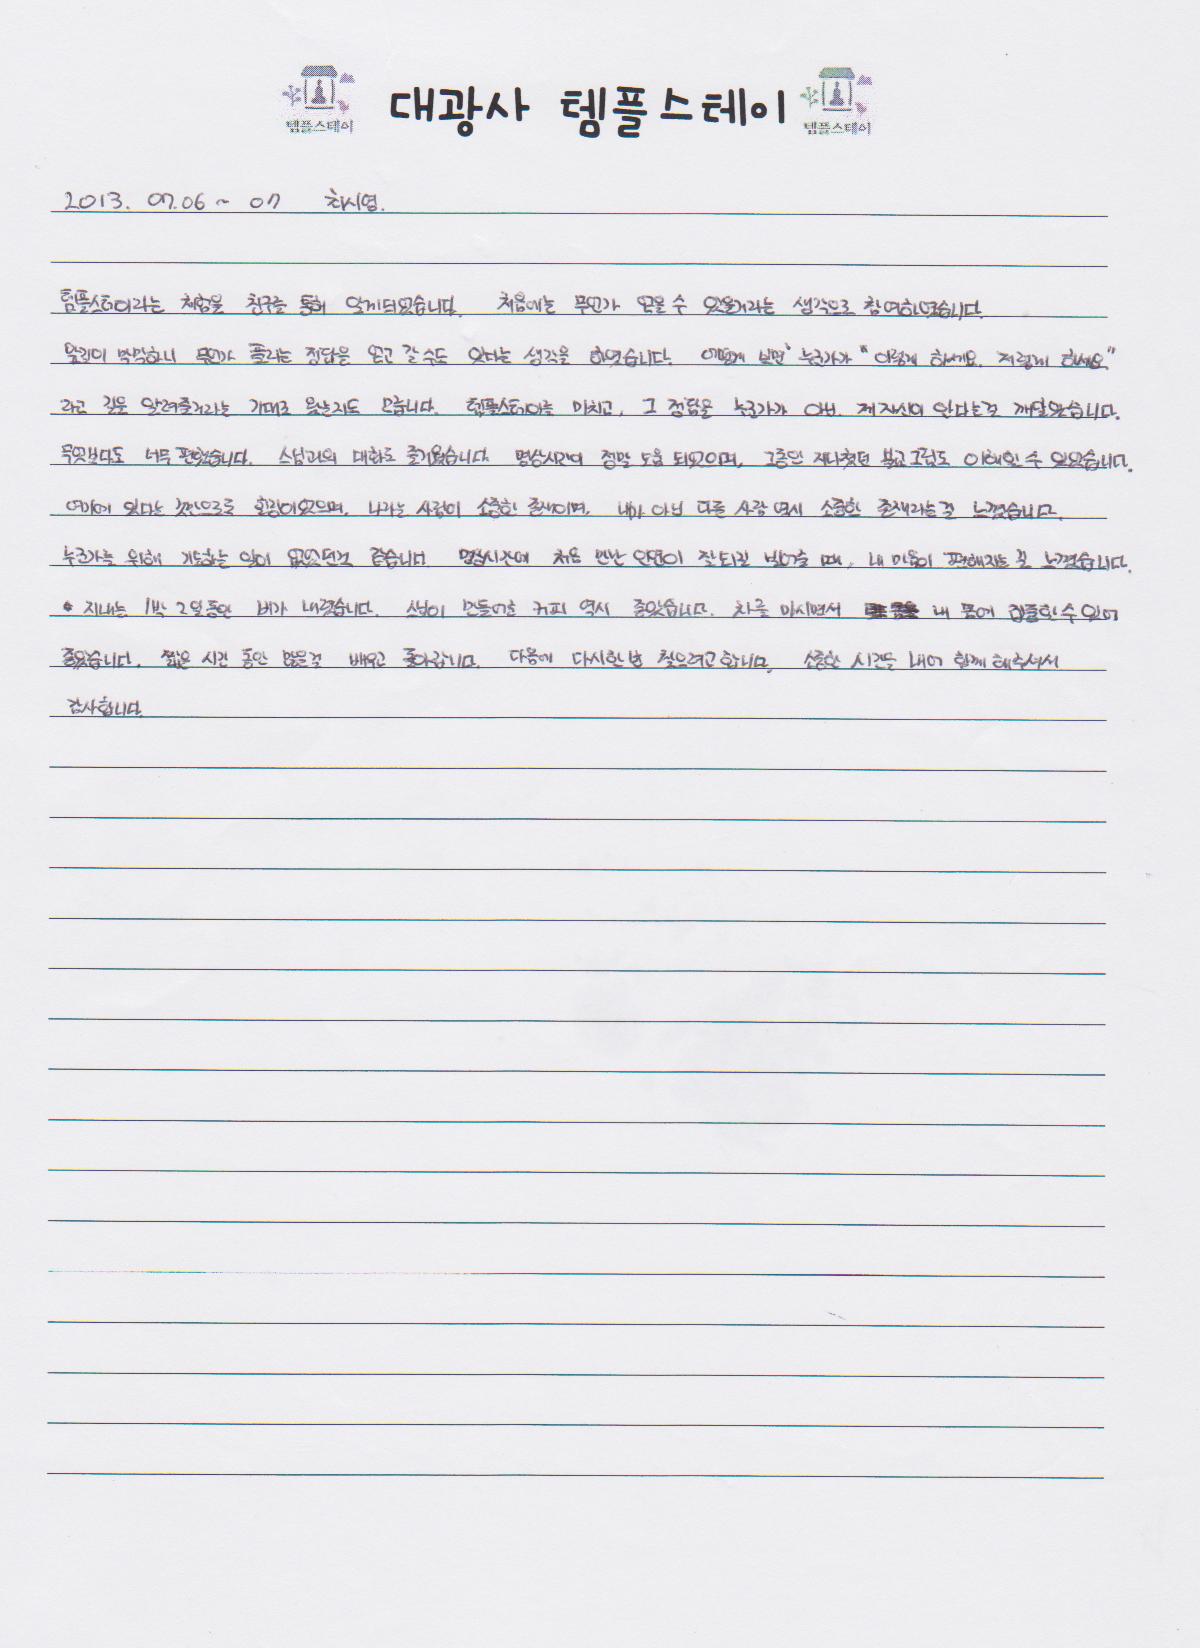 템플스테이 대광사 템플스테이 템플스테이
2013. 07.06 ~ 07 차시영.
템플스테이라는 체험을 친구를 통해 알게되었습니다. 처음에는 무언가 얻을 수 있을거라는 생각으로 참여하였습니다.
앞길이 막막하니 무언가 풀리는 정답을 얻고 갈수도 있다는 생각을 하였습니다. 어떻게 보면 누군가가 "이렇게 하세요. 저렇게 하세요"
라고 길을 알려줄거라는 기대로 왔는지도 모릅니다. 템플스테이를 마치고, 그 정답은 누군가가 아닌. 제 자신이 안다는걸 깨달았습니다.
무엇보다도 너무 편했습니다. 스님과의 대화도 즐거웠습니다. 명상시간이 정말 도움 되었으며, 그동안 지나쳤던 불교그림도 이해할 수 있었습니다.
여기에 있다는 것만으로도 힐링이었으며, 나라는 사람이 소중한 존재이며, 내가 아닌 다른 사람 역시 소중한 존재라는걸 느꼈습니다.
누군가를 위해 기도하는 일이 없었던것 같습니다. 명상시간에 처음 만난 인연이 잘되길 빌어줄 때, 내 마음이 편해지는 걸 느꼈습니다.
지내는 1박 2일동안 비가 내렸습니다. 스님이 만들어준 커피 역시 좋았습니다. 차를 마시면서 내 몸에 집중할 수 있어
좋았습니다. 짧은 시간 동안 많은걸 배우고 돌아갑니다. 다음에 다시한번 찾으려고 합니다. 소중한 시간을 내어 함께 해주셔서
감사합니다.